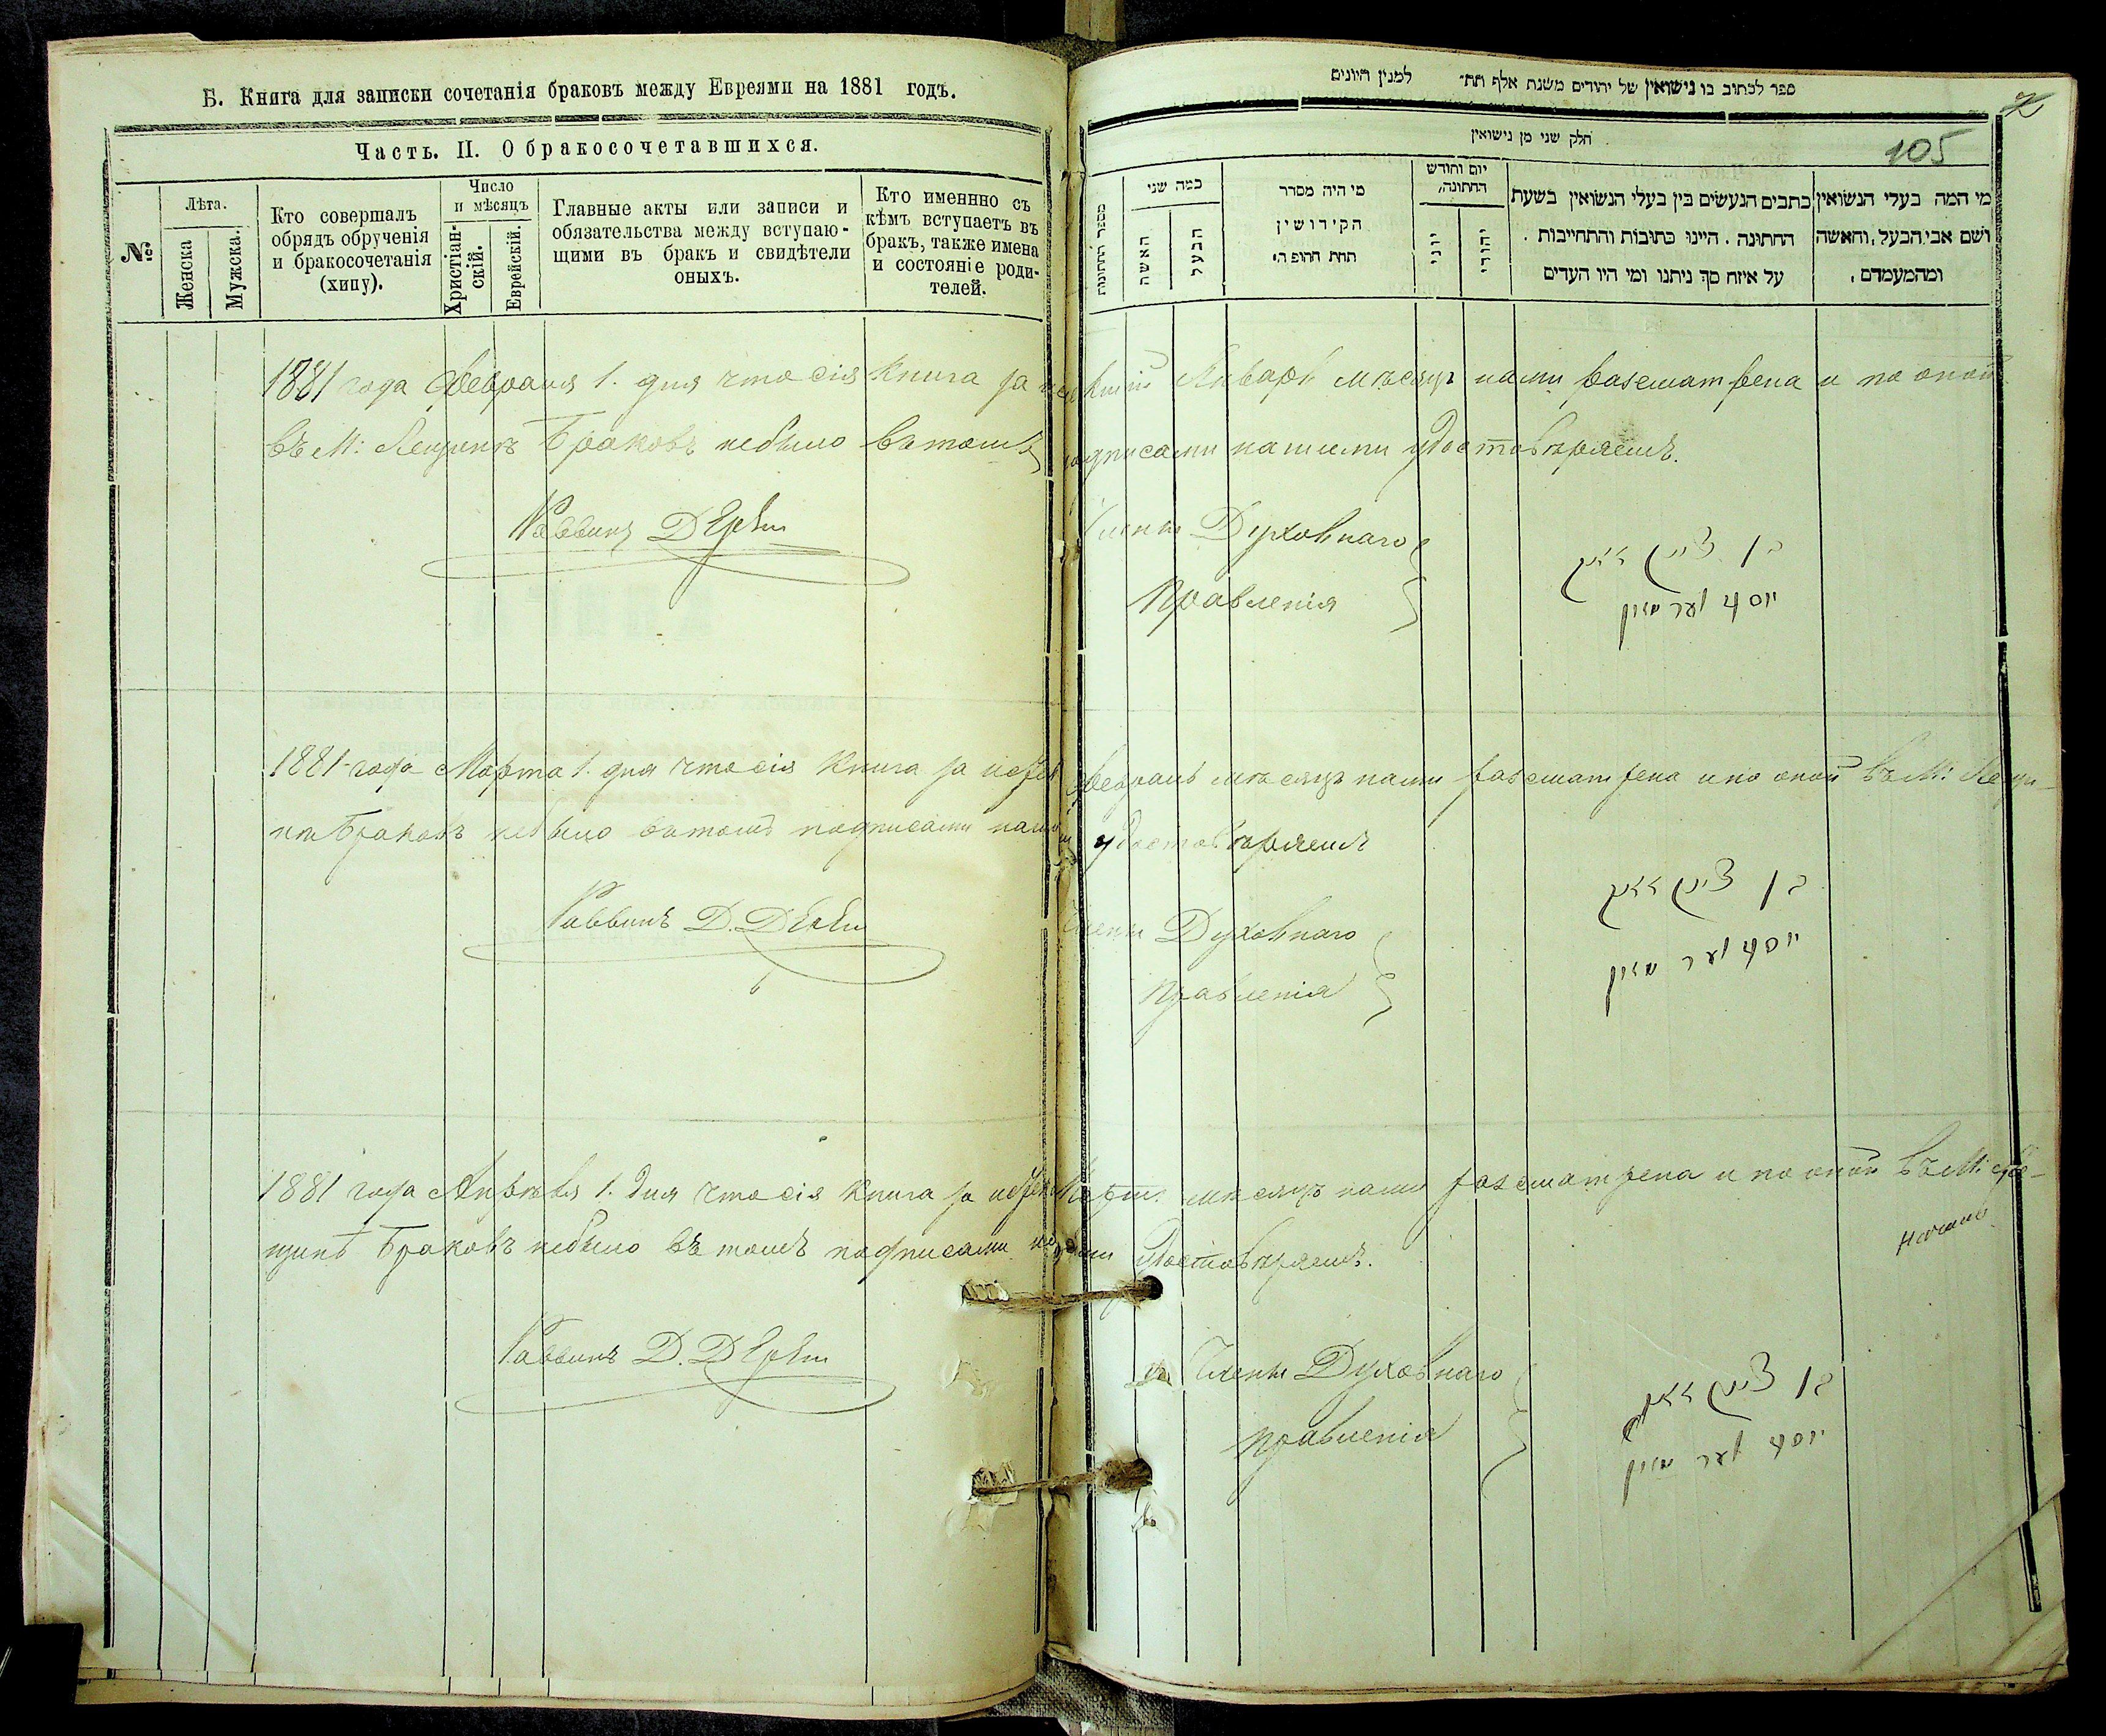 Б. Книга для записки сочетанія браковъ между Евреями на 1881 годъ.
Часть. II. О бракосочетавшихся.
№
Лѣта.
Женска
Мужска.
Кто совершалъ
обрядъ обрученія
и бракосочетанія
(хипу).
Число
и мѣсяцъ
Христіан-
скій.
Еврейскій.
Главные акты или записи и
обязательства между вступаю-
щими въ бракъ и свидѣтели
оныхъ.
Кто именнно съ
кѣмъ вступаетъ въ
бракъ, также имена
и состояніе роди-
телей.
ספר לכתוב בו נישואין של יהודים משנת אלף תת״ למנין היונים
חלק שני מן נישואין
105
מספר החתונות
כמה שני
האשה
הבעל
מי היה מסדר
הקידושין
תחת החופה
יום וחודש
החתונה
יוני
יהודי
כתבים הנעשים בין בעלי הנשואין בשעת
החתונה. היינו כתובות והתחייבות.
על איזה סך ניתנו ומי היו העדים
מי המה בעלי הנשואין
ושם אבי הבעל, והאשה
ומהמעמדם.
1881 года Февраля 1. дня что сія книга за истекшій Январь мѣсяцъ нами разсматрена и по оной
въ М: Лещинѣ Браковъ небыло въ томъ подписами нашими удостовѣряемъ.
Раввинъ Д
Члены Духовнаго
Правленія
בן ציון
יוסף
1881 года Марта 1. дня что сія книга за истек Февраль мѣсяцъ нами разсматрена и по оной въ М: Лещи-
нѣ Браковъ небыло въ томъ подписами нашими удостовѣряемъ
Раввинъ Д.
Члены Духовнаго
Правленія
בן ציון
יוסף
1881 года Апрѣля 1. дня что сія книга за истек Мартъ мѣсяцъ нами разсматрена и по оной въ М: Ле-
щинѣ Браковъ небыло въ томъ подписами нашими удостовѣряемъ.
Раввинъ Д.
Члены Духовнаго
Правленія
בן ציון
יוסף